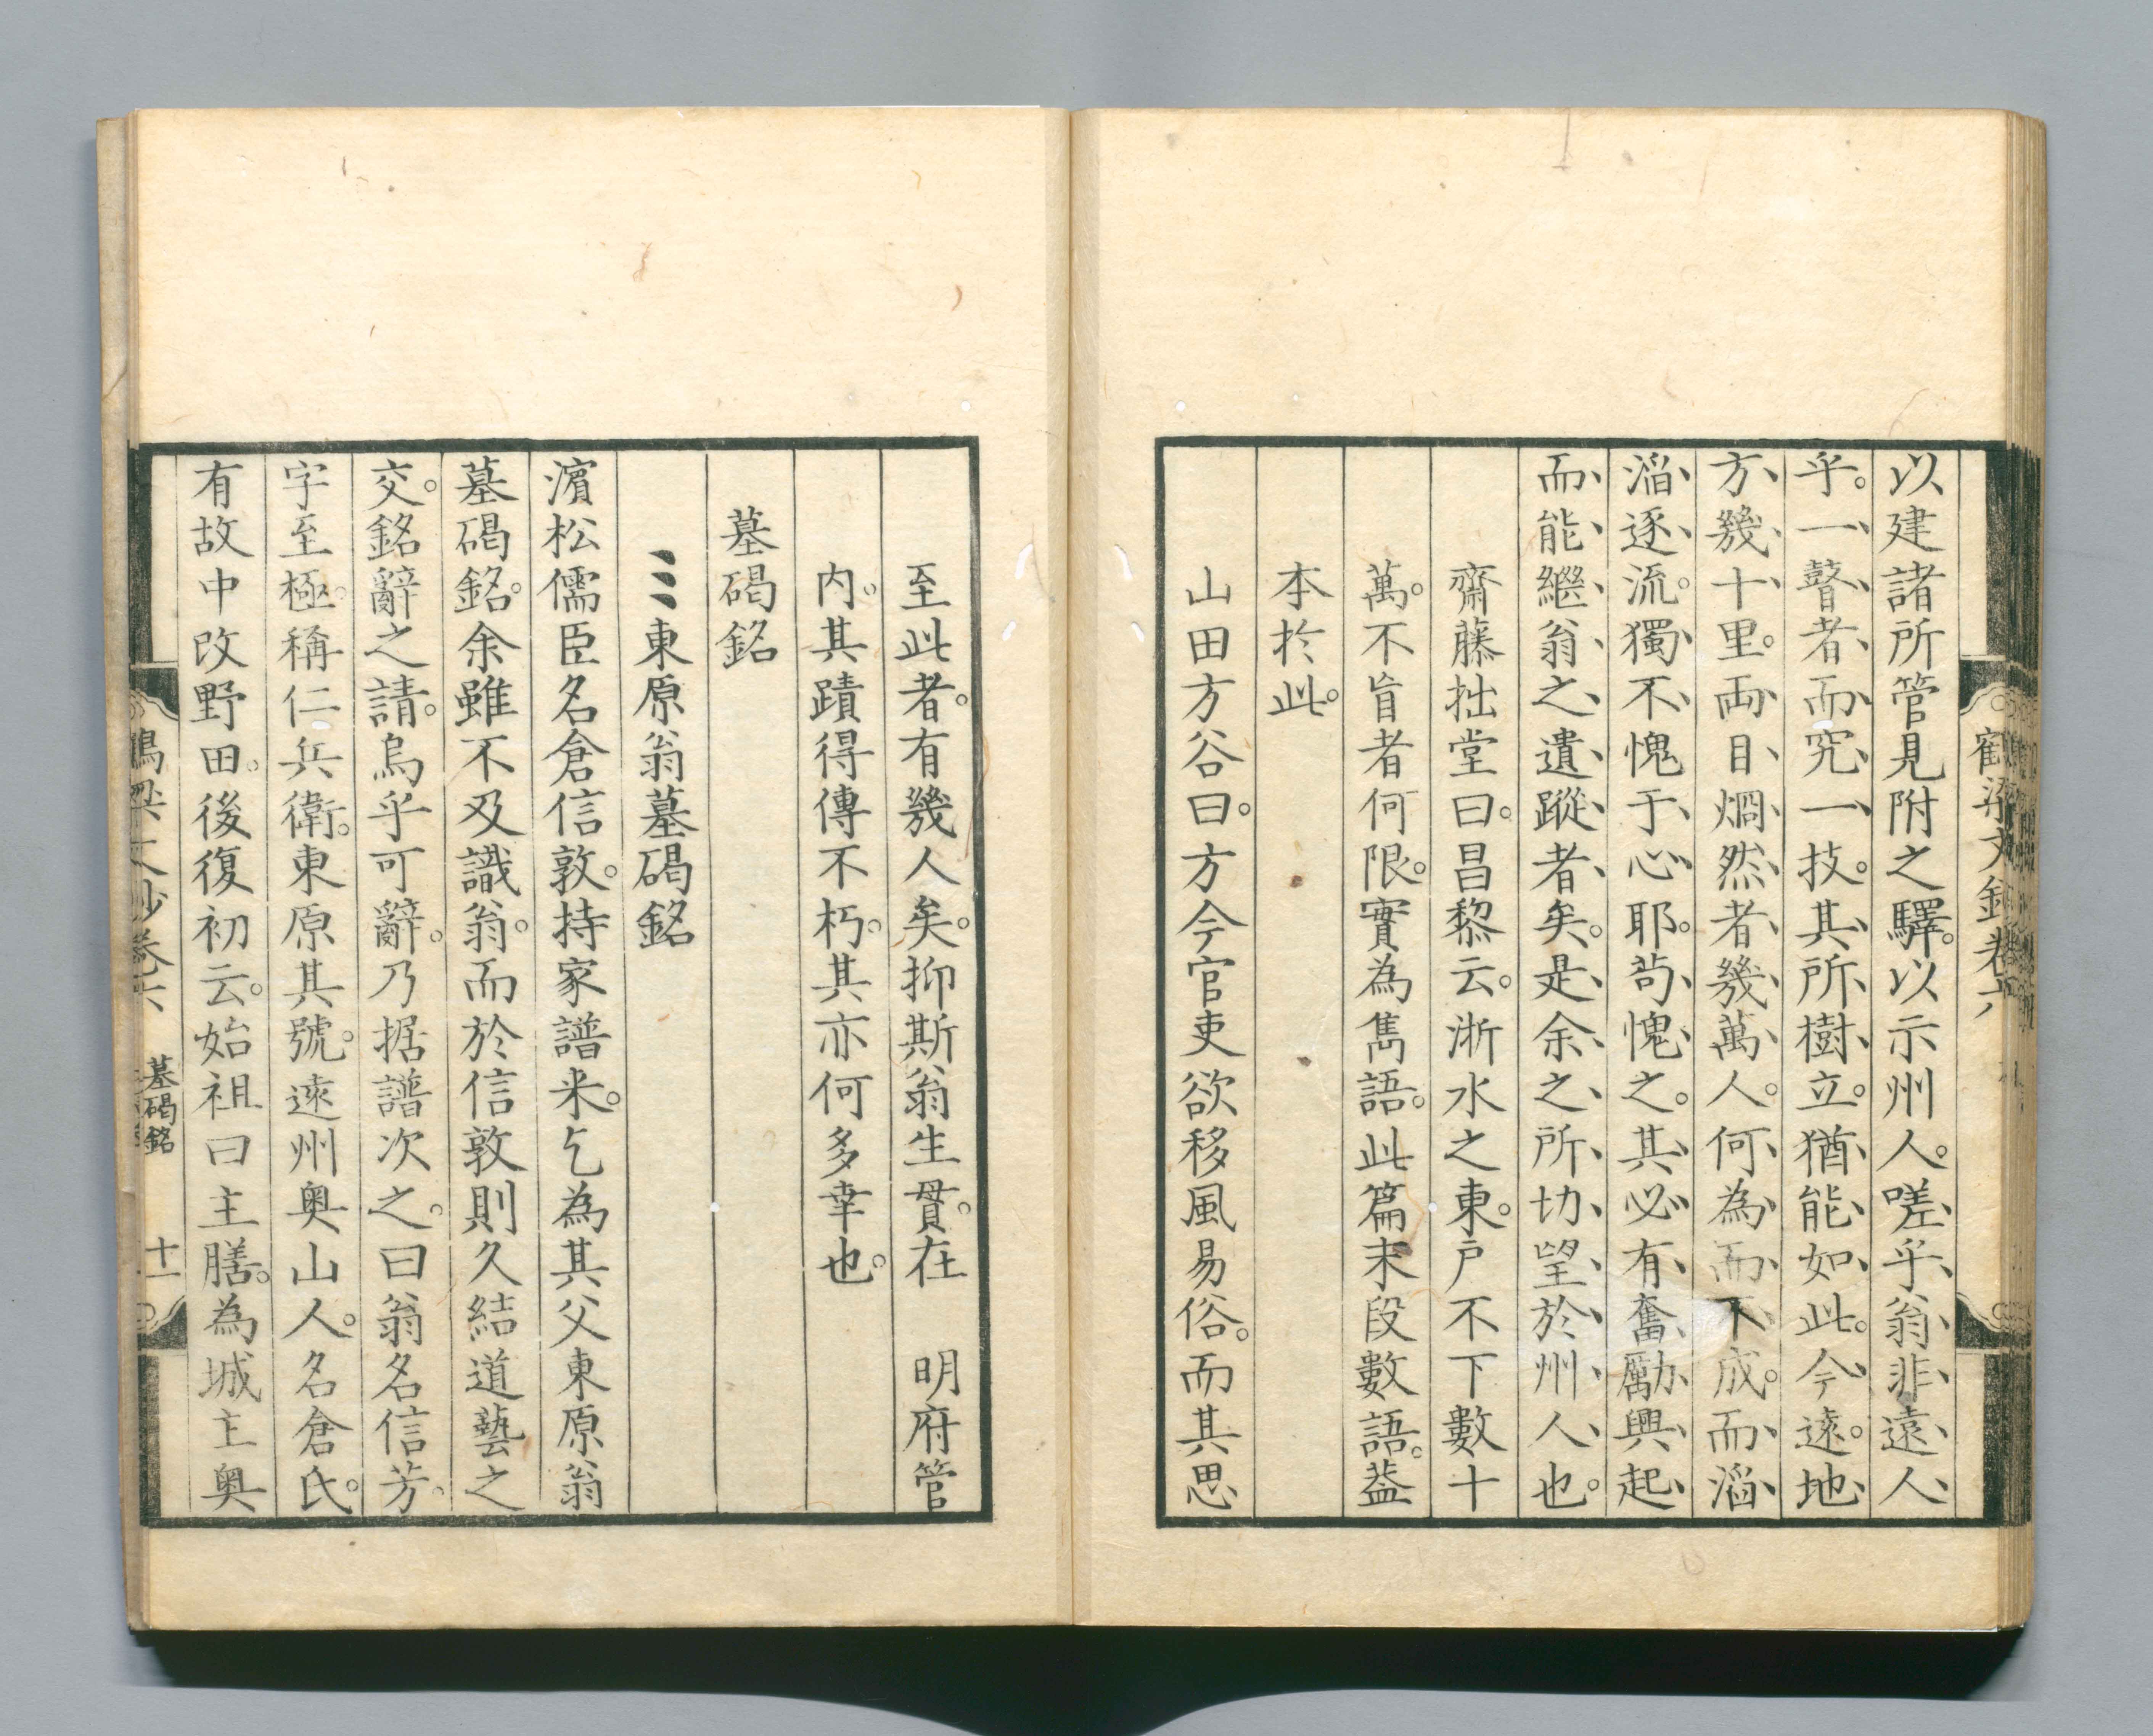 以建諸所管見附之驛。以示州人。嗟、乎、翁、非、遠、人、
乎。一、瞽、者、而、究、一、技。其、所、樹、立。猶、能、如、此。今、遠。地、
方、幾、十、里。両、目、烱、然、者、幾、萬、人。何、為、而、不、成。而、滔、
滔、逐、流。獨、不、愧、于、心、耶。苟、愧、之。其、必、有、奮、勵、興、起、
而、能、繼、翁、之、遺、蹤、者、矣。是、余、之、所、切、望、於、州、人、也。
齋藤拙堂曰。昌黎云。淅水之東。戸不下數十
萬。不盲者何限。實為雋語。此篇末段數語。葢
本於此。
山田方谷曰。方今官吏欲移風易俗。而其思
至此者。有幾人矣。抑斯翁生貫。在　明府管
内。其蹟得傳不朽。其亦何多幸也。
墓碣銘
東原翁墓碣銘
濱松儒臣名倉信敦。持家譜来。乞為其父東原翁
墓碣銘。余雖不及識翁。而於信敦則久結道藝之
交。銘辭之請。烏乎可辭。乃据譜次之。曰翁名信芳。
字至極。稱仁兵衛。東原其號。遠州奥山人。名倉氏。
有故中改野田。後復初云。始祖曰主膳。為城主奥
墓碣銘
十一